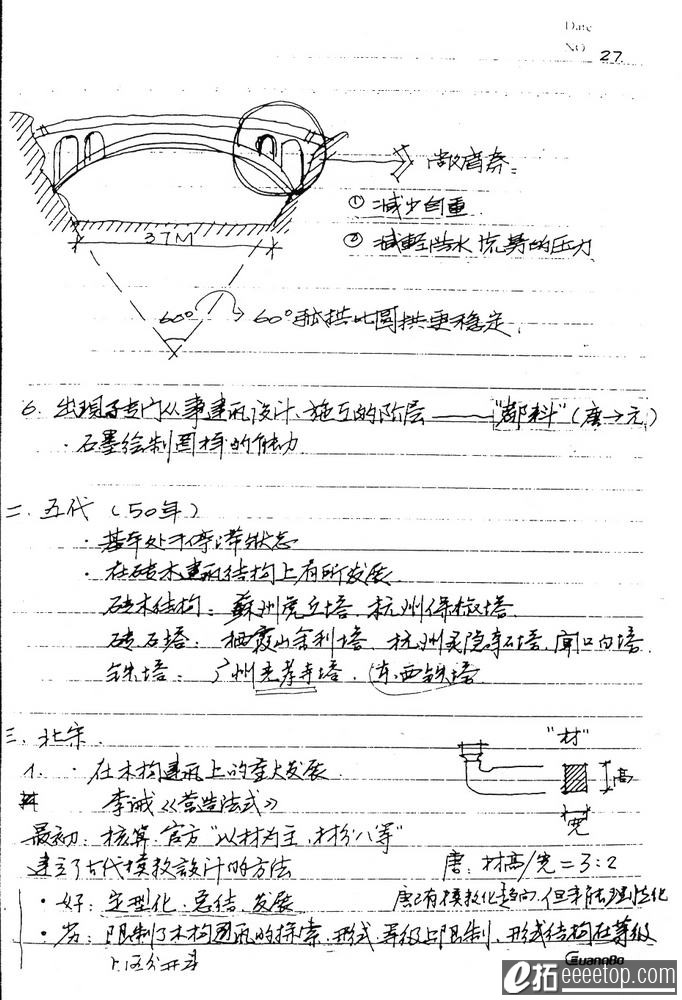 Date
NO 27.
敞肩券:
① 减少自重.
② 减轻洪水 的压力
37M
60° 60°弧拱比圆拱更稳定.
6. 出现了专门从事建筑设计、施工的阶层——"都料"(唐→元)
· 绘制图样的能力
二. 五代 (50年)
· 基本处于停滞状态
· 在砖木建筑结构上有所发展
砖木结构: 蘇州虎丘塔. 杭州保俶塔.
砖石塔: 栖霞山舍利塔. 杭州灵隐寺石塔. 闸口白塔.
铁塔: 广州光孝寺塔. (东.西铁塔
三. 北宋.
1. · 在木构建筑上的重大发展. "材"
李诫《营造法式》 高
宽
最初: 核算. 官方 "以材为主, 材分八等"
建立了古代模数設计的方法 唐: 材高/宽=3:2
· 好: 定型化. 总结. 发展 唐已有模数化趋向, 但未
· 劣: 限制了木构建筑的探索. 形式. 等级上限制, 形式结构在等级
上区分开来
GuangBo
e拓 eeeetop.com